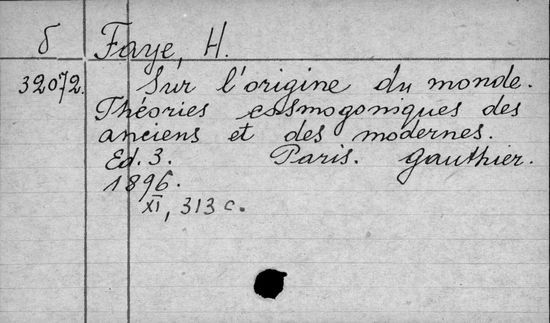 б Faye, H.
32072. Sur l'origine du monde.
Théories cosmogoniques des
anciens et des modernes.
Ed. 3. Paris. Gauthier.
1896.
XI, 313 c.